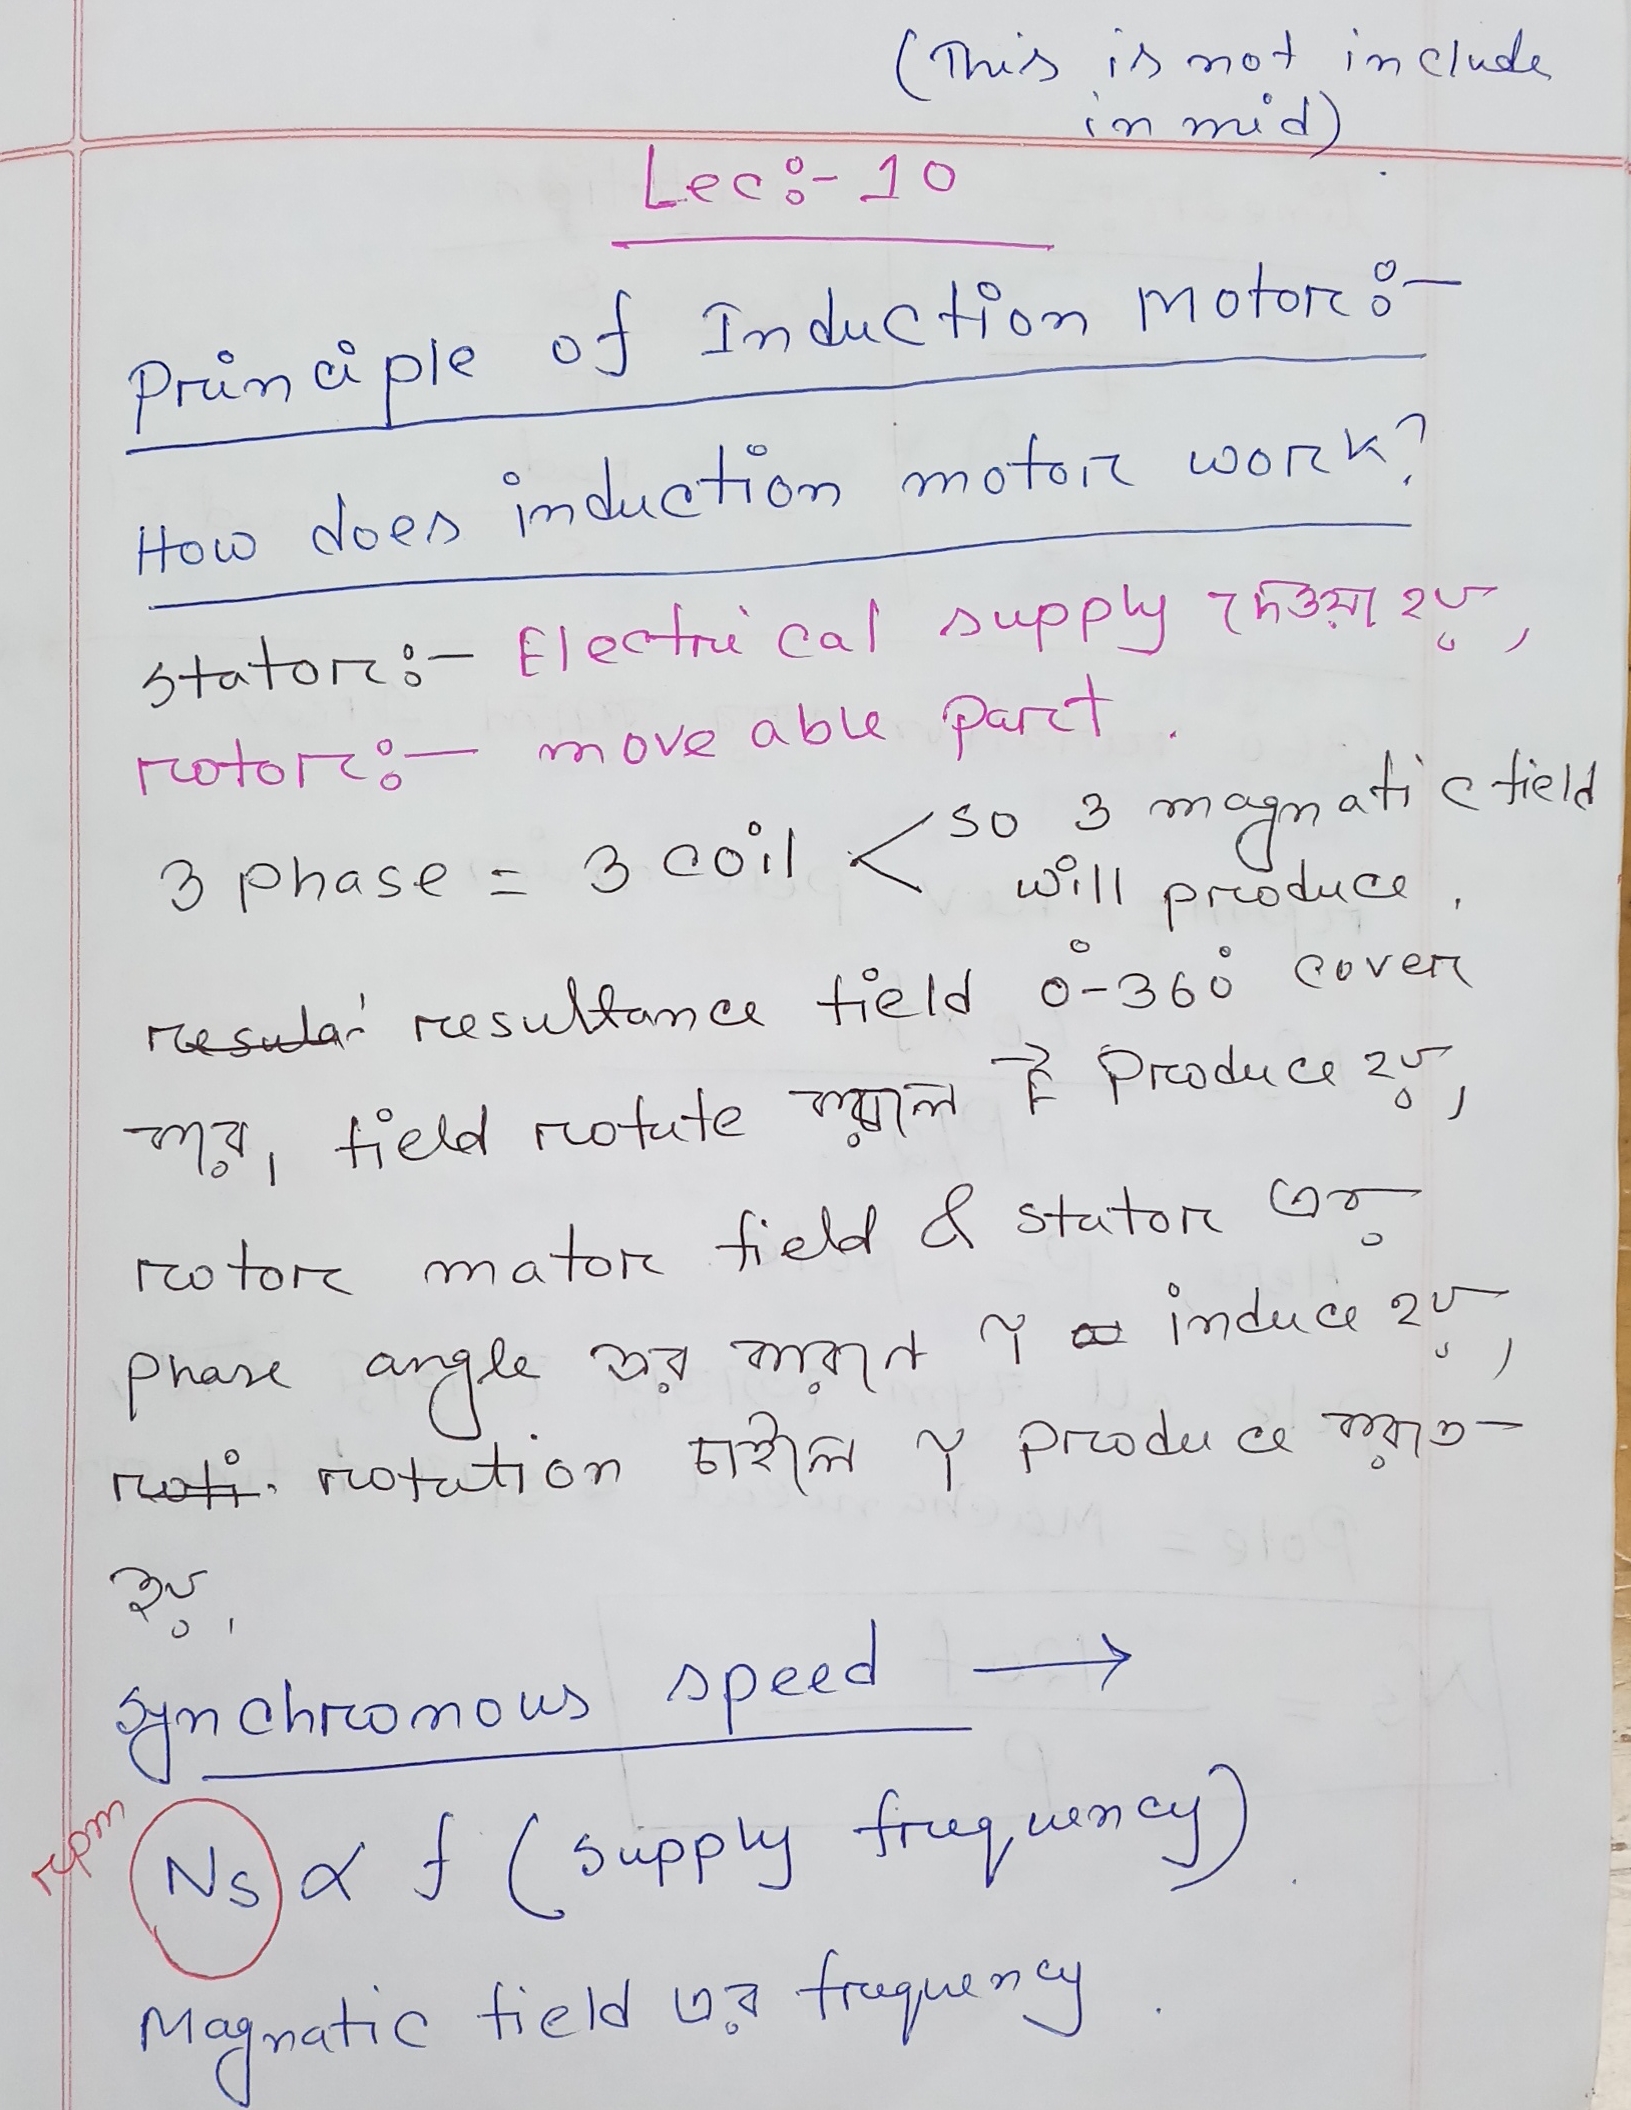 (This is not include
in mid)
Lec:- 10
Principle of Induction Motor:-
How does induction motor work?
stator:- Electrical supply দেওয়া হয়,
rotor:- moveable part.
3 phase = 3 coil < so 3 magnatic field
will produce.
resultance field 0°-360° cover
করে, field rotate করলে F produce হয়,
rotor mator field & stator এর
phase angle এর কারণে γ induce হয়,
rotation চাইলে γ produce করাতে
হবে,
Synchronous speed →
rpm
Ns ∝ f (supply frequency)
Magnatic field এর frequency.